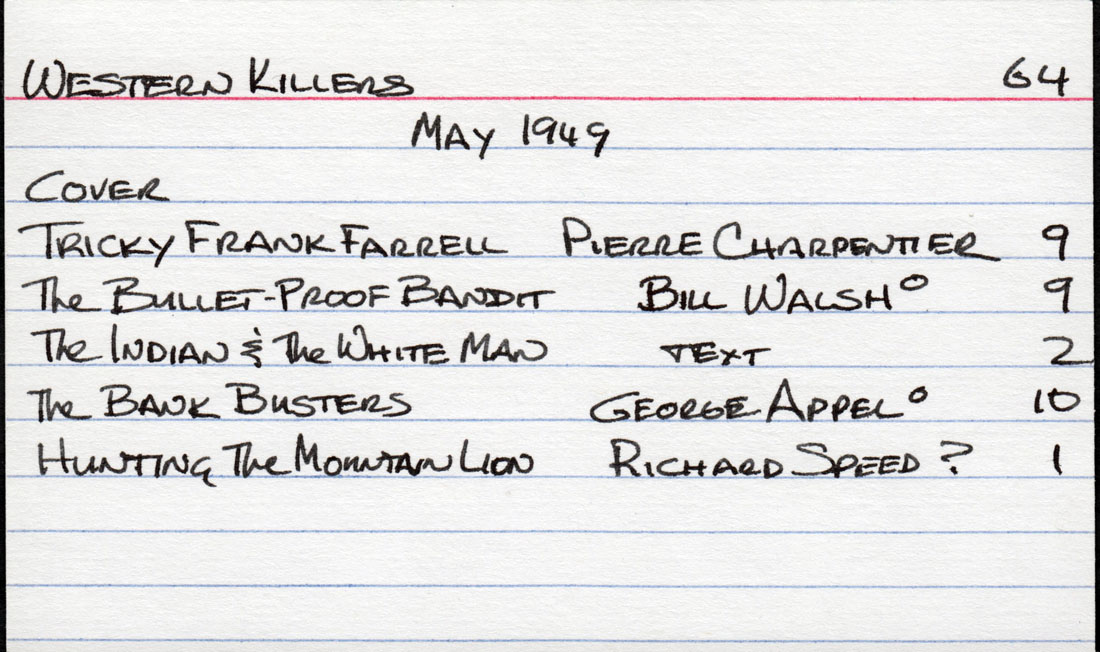 WESTERN KILLERS 64
MAY 1949
COVER
TRICKY FRANK FARRELL PIERRE CHARPENTIER 9
The BULLET-PROOF BANDIT BILL WALSH° 9
The INDIAN & The WHITE MAN TEXT 2
The BANK BUSTERS GEORGE APPEL° 10
HUNTING The MOUNTAIN LION RICHARD SPEED ? 1